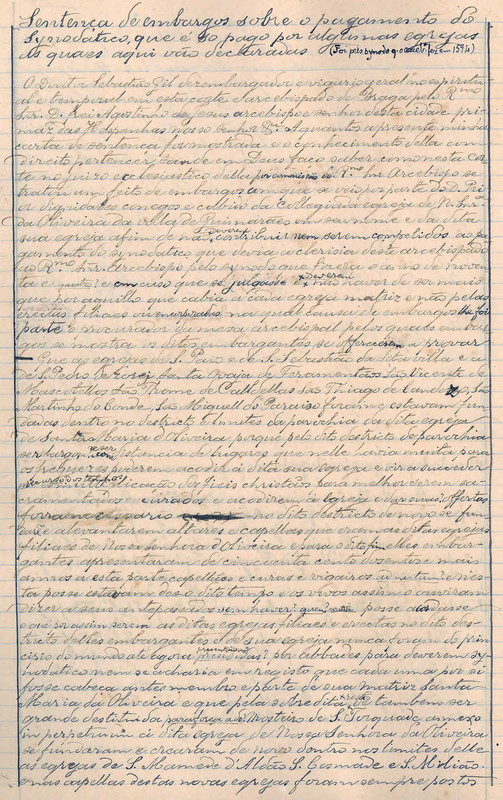 Sentença de embargos sobre o pagamento do
Synodático, que é so pago por algumas egrejas
as quaes aqui vão declaradas (Foi pelo synodo q. o arceb.º fez em 1594)
O Doutor Sebastião Gil dezembargador e vigario geral no espiritu-
al e temporal em esta corte e arcebispado de Braga pelo Rmo
Snr. D. Frei Agostinho de Jesus arcebispo e senhor desta cidade pri-
maz das Hespanhas nosso senhor &ª. A quantos a presente minha
carta de sentença for mostrada e o conhecimento della com
direito pertencer, saude em Deus, faço saber como nesta cor-
te no juizo ecclesiastico della por comissão do Rmo Snr Arcebispo se
tratou um feito de embargos a mais se veio por parte do D. Prior
dignidades conegos e collegio da Collegiada egreja de N. Snrª
da Oliveira da villa de Guimarães em seu nome e da dita
sua egreja afim de não deverem contribuir nem serem compellidos ao pa-
gamento do synodatico que devia a clerisia deste arcebispado
ao Rmo Snr. Arcebispo pelo synodo que fizera o anno de noven-
ta e quatro; e em caso que se julgasse deverem não haver de ser mais
que por aquillo que cabia a cada egreja matriz e não pelas
erectas filiaes ou na qual causa de embargos lhe foi
parte o procurador da meza arcebispal pelos quaes embar-
gos se mostra os ditos embargantes se offereciam a provar
Que as egrejas de S. Paio e de S. Sebastião da dita villa e a
de S. Pedro de Azurei Santa Ovaia de Fermentões São Vicente de
Mascotellos São Thome de Caldellas São Thiago de Candoso, São
Martinho do Conde, São Miguel do Paraiso foram e estavam fun-
dadas dentro no destricto e limites da parochia da dita egreja
de Santa Maria d'Oliveira, porque pelo dito destricto de parochia
ser largo e em distancia de lugares que nelle havia muita para
os freguezes poderem acodir á dita sua egreja e vir a succeder
dos fieis christãos para melhor serem sa-
cramentados e curados e acodirem á egreja e
forra no dito destricto de novo se fun-
darem e alevantarem altares e capellas que eram as ditas egrejas
filiaes de Nossa Senhora d'Oliveira e para o dito fim elles embar-
gantes apresentaram de cincoenta cento duzentos e mais
annos a esta parte capellães e curas e vigairos e nes-
ta posse estavam des o dito tempo e os vivos assim o ouviram
dizer a seus antepassados sem haver quem
e que por assim serem as ditas egrejas filiaes e erectas no dito des-
tricto delles embargantes e de sua egreja nunca foram do prin-
cipio do mundo até agora presentadas por abbades para deverem sy-
nodatico nem se acharia em registo que cada uma por si
fosse cabeça antes membro e parte de sua matriz Santa
Maria da Oliveira e que pela sobredita e tambem ser
grande destricto da parochia ao Mosteiro de S. Torquade, annexo
in perpetuum á dita egreja de Nossa Senhora da Oliveira
se fundaram e crearam de novo dentro nos limites delle
as egrejas de S. Mamede d'Aldão S. Cosmade e S. Milião
e nas capellas destas novas egrejas foram sempre postos